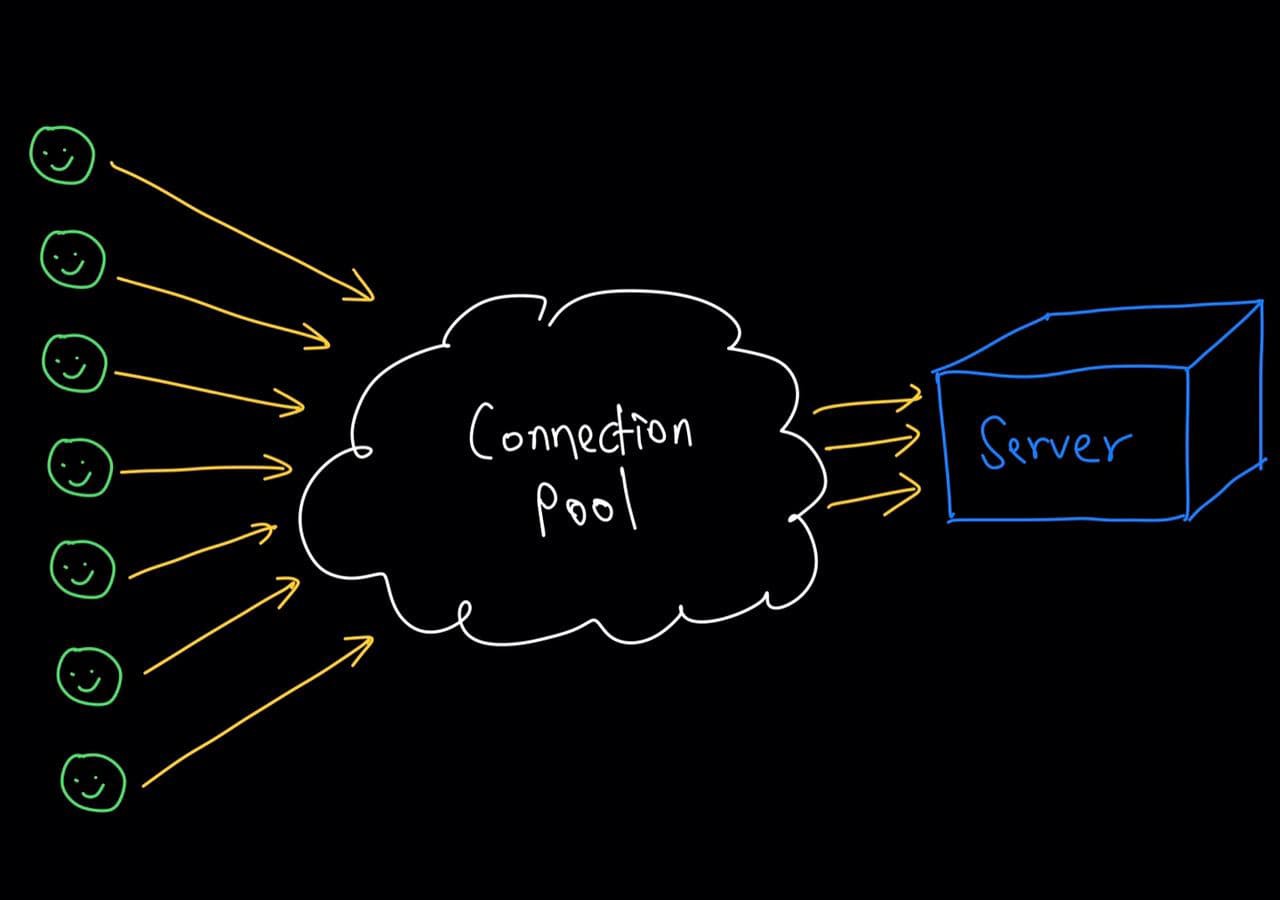 Connection
Pool
Server